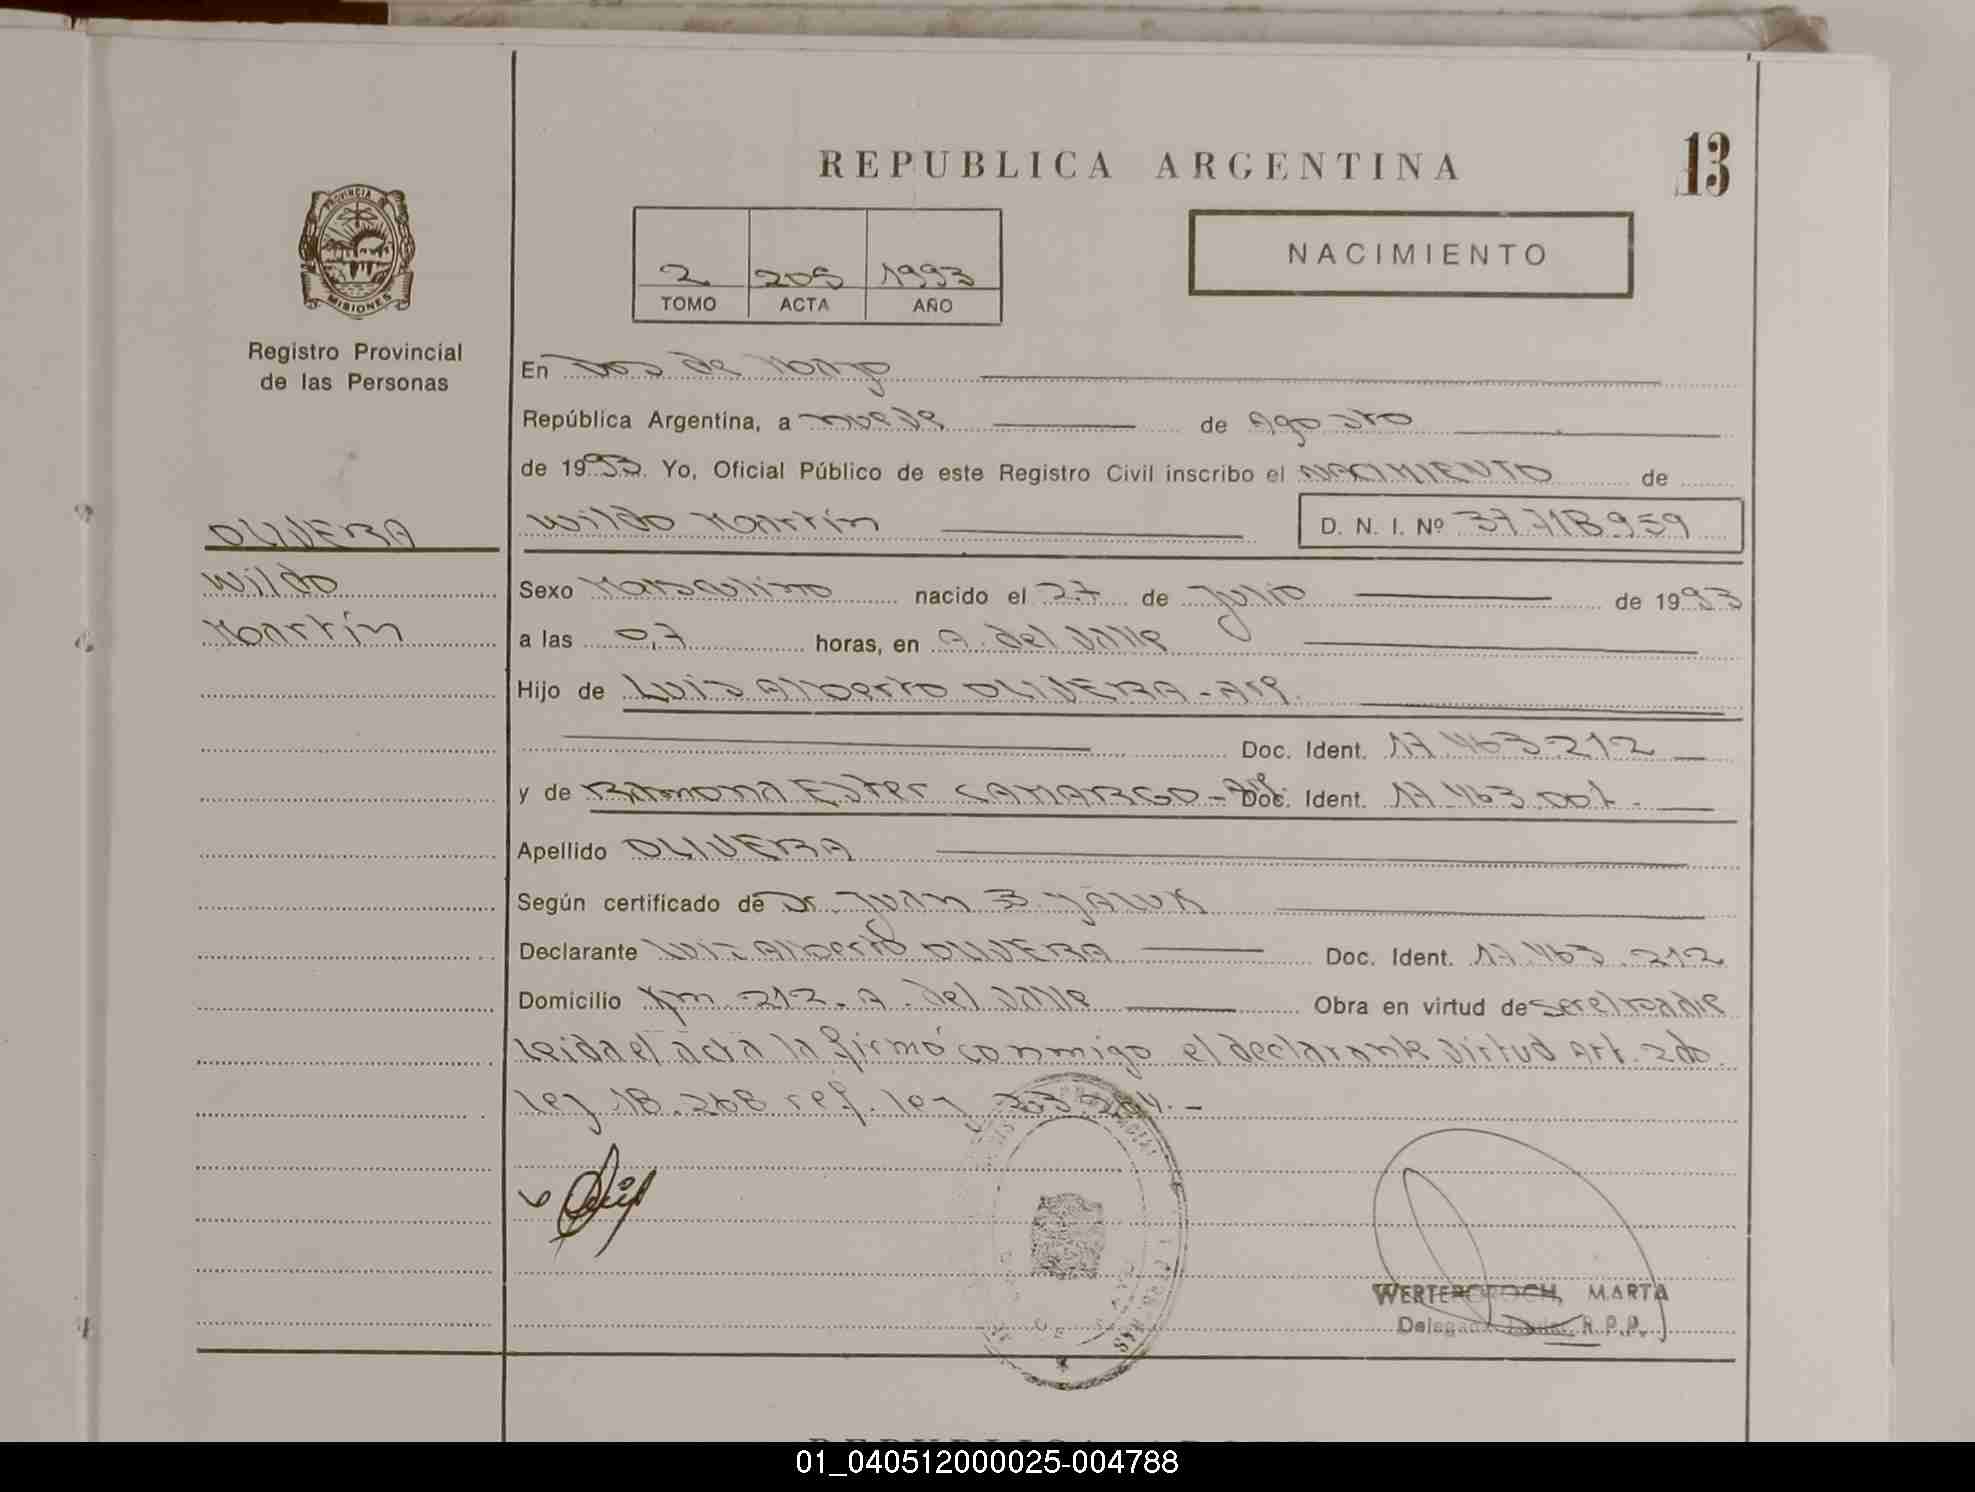 REPUBLICA ARGENTINA
13
PROVINCIA DE
MISIONES
Registro Provincial
de las Personas
NACIMIENTO
2 205 1993
TOMO ACTA AÑO
En Dos de Mayo
República Argentina, a nueve de Agosto
de 1993. Yo, Oficial Público de este Registro Civil inscribo el NACIMIENTO de
OLIVERA
Wildo Martín D. N. I. Nº 37.718.959
Wildo
Martín
Sexo Masculino nacido el 27 de Julio de 1993
a las 0,7 horas, en A. del Valle
Hijo de Luis Alberto OLIVERA - Arg.
Doc. Ident. 17.463.212
y de Ramona Ester CAMARGO - Arg. Doc. Ident. 17.463.001.
Apellido OLIVERA
Según certificado de Dr. Juan B.
Declarante Luis Alberto OLIVERA Doc. Ident. 17.463.212
Domicilio Km. 212. A. del Valle Obra en virtud de ser el padre
Leida el acta la firmó conmigo el declarante virtud Art. 2do.
Ley 18.268 ref. ley 23.264.-
WERTEROTOCH, MARTA
Delegada Titular R.P.P.
01_040512000025-004788